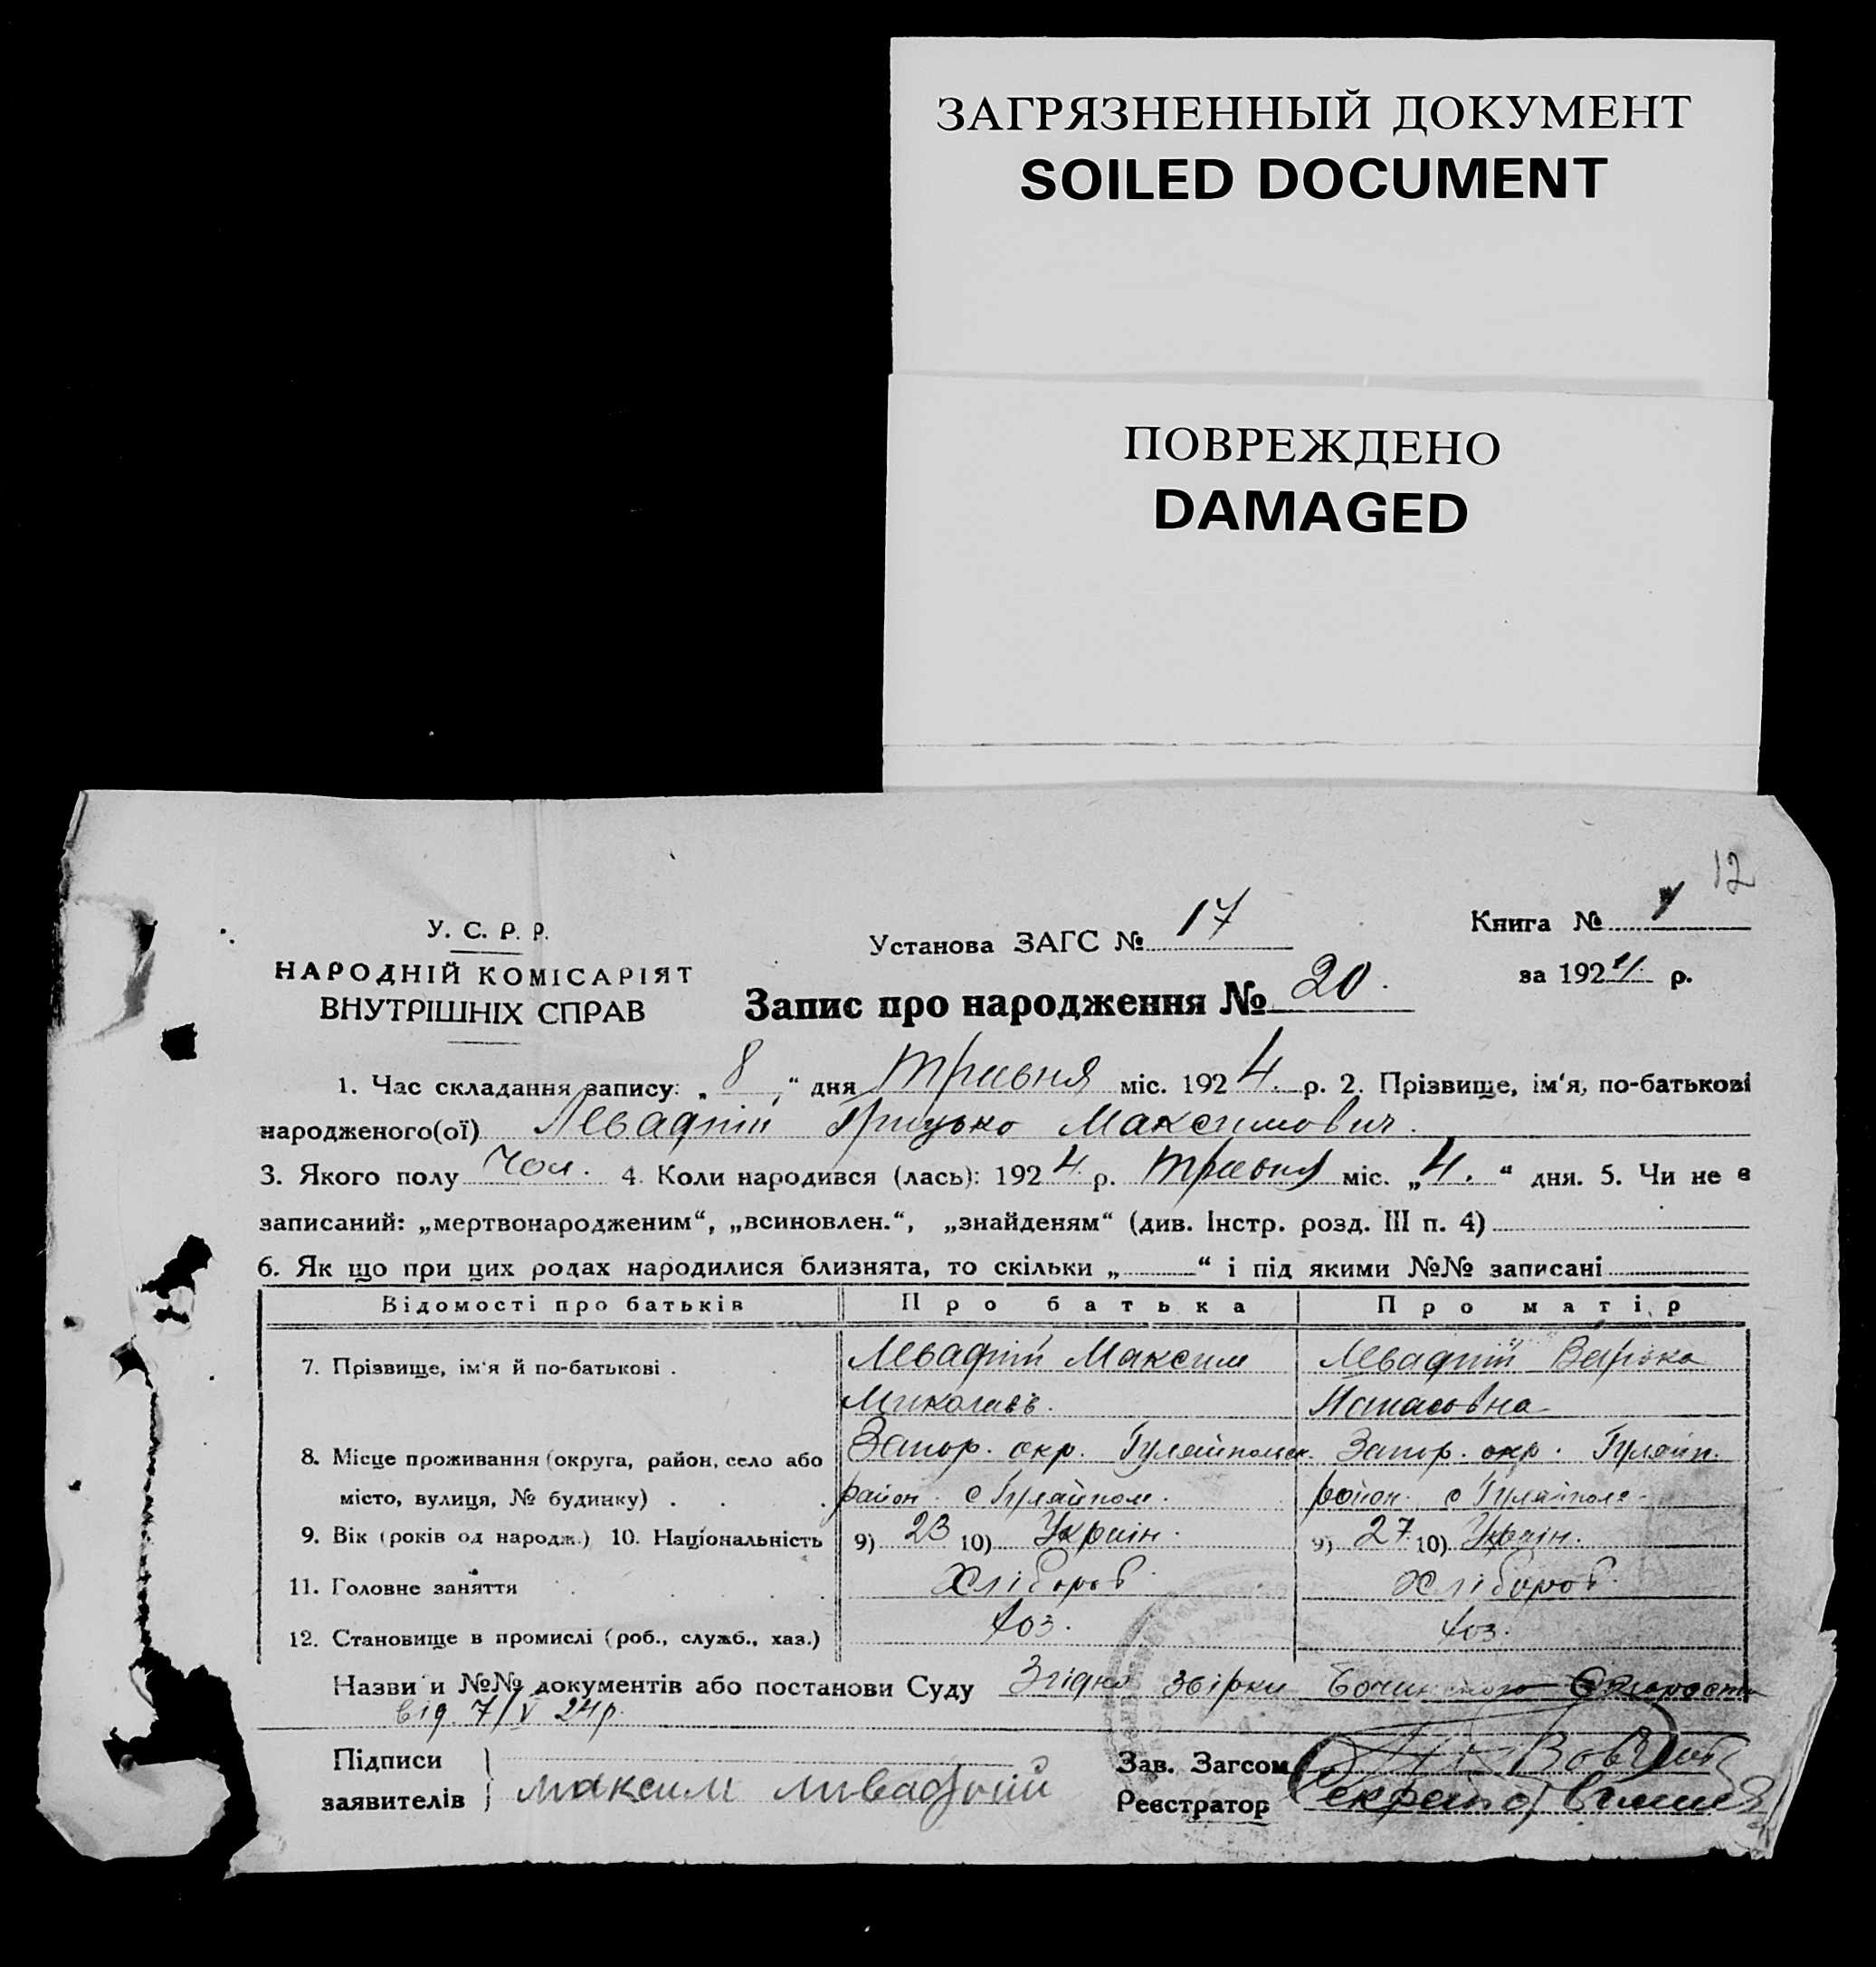 ЗАГРЯЗНЕННЫЙ ДОКУМЕНТ
SOILED DOCUMENT
ПОВРЕЖДЕНО
DAMAGED
12
У. С. Р. Р.
НАРОДНІЙ КОМІСАРІЯТ
ВНУТРІШНІХ СПРАВ
Установа ЗАГС № 17
Книга № 1
за 1924 р.
Запис про народження № 20.
1. Час складання запису: „ 8 “ дня Травня міс. 1924. р. 2. Прізвище, ім‘я, по-батькові
народженого(ої) Левадній Грицько Максимович.
3. Якого полу Чол. 4. Коли народився (лась): 1924 р. Травня міс. „4.“ дня. 5. Чи не є
записаний: „мертвонародженим“, „всиновлен.“, „знайденям“ (див. Інстр. розд. III п. 4)
6. Як що при цих родах народилися близнята, то скільки „ “ і під якими №№ записані
Відомості про батьків Про батька Про матір
7. Прізвище, ім‘я й по-батькові . Левадній Максим Левадній Варька
Миколаєв. Панасовна
8. Місце проживання (округа, район, село або Запор. окр. Гуляйпольск. Запор. окр. Гуляйп.
місто, вулиця, № будинку) . . . район. с Гуляйполе. район. с Гуляйполе.
9. Вік (років од народж.) 10. Національність 9) 23 10) Україн. 9) 27 10) Україн.
11. Головне заняття Хлібороб. Хлібороб.
12. Становище в промислі (роб., служб., хаз.) хоз. хоз.
Назви и №№ документів або постанови Суду Згідно
від 7/V 24р.
Підписи
заявителів Максим Ливадній
Зав. Загсом
Реєстратор Секретар